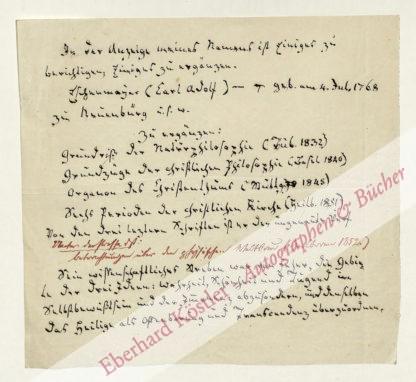 In der Anzeige meines Namens ist Einiges zu
berichtigen, Einiges zu ergänzen.
Eschenmayer (Carl Adolf) — geb. am 4. Jul. 1768
zu Neuenbürg u.s.w.
Zu ergänzen:
Grundriß der Naturphilosophie (Tüb. 1832)
Grundzüge der christlichen Philosophie (Basel 1840)
Organon des Christenthums (Stuttg. 1845)
Sechs Perioden der christlichen Kirche (Heilb. 1851)
Von den drei letztern Schriften ist er der
Betrachtungen über den physischen Weltbau (Heilbronn 1852)
Sein wissenschaftliches Streben war die Gebie
te der drei Ideen: Wahrheit, Schönheit und Tugend im
Selbstbewußtsein und der abzusondern, und denselben
das Heilige als Offenbarung und Transcendenz überzuordnen.
Eberhard Köstler Autographen & Bücher